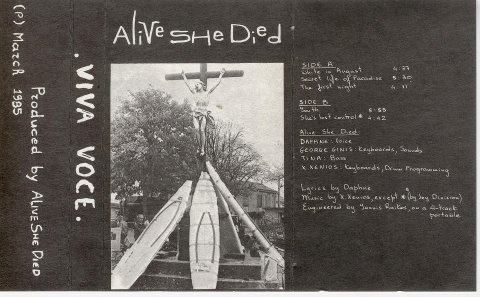 (P) March 1985
Produced by Alive She Died
. VIVA VOCE .
Alive She Died
SIDE A
White in August 4:27
Secret life of Paradise 5:30
The first night 4:11
SIDE B
Youth 6:55
She's lost control * 4:42
Alive She Died
DAPHNE: Voice
GEORGE GINIS: Keyboards, Sounds
TINA: Bass
X. XENIOS: Keyboards, Drum Programming
Lyrics by Daphne
Music by X. Xenios, except * (by Joy Division)
Engineered by Yannis on a 4-track
portable